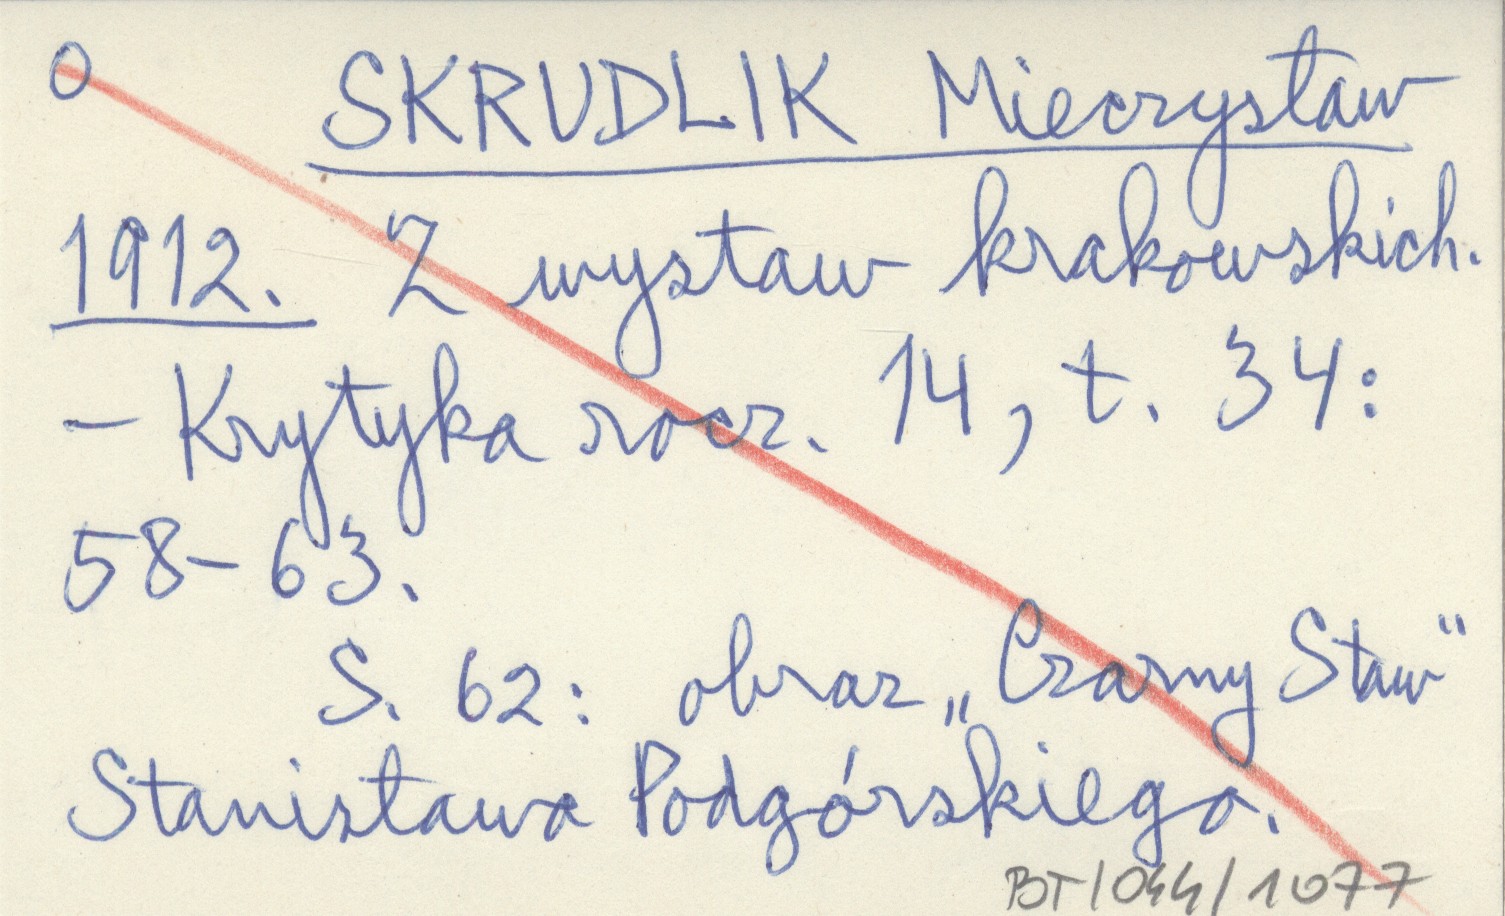 O SKRUDLIK Mieczysław
1912. Z wystaw krakowskich.
– Krytyka rocz. 14, t. 34:
58–63.
S. 62: obraz „Czarny Staw"
Stanisława Podgórskiego.
BT/044/1077